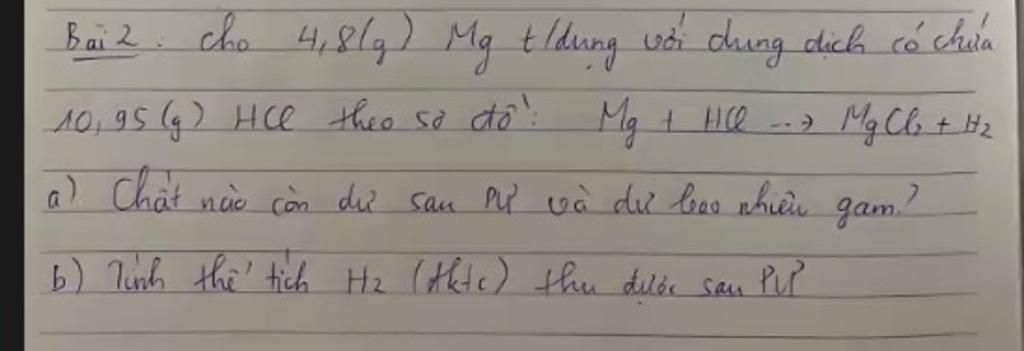 Bài 2: Cho 4,8(g) Mg t/dụng với dung dịch có chứa
10,95(g) HCl theo sơ đồ: Mg + HCl --→ MgCl₂ + H₂
a) Chất nào còn dư sau PƯ và dư bao nhiêu gam?
b) Tính thể tích H₂ (đktc) thu được sau PƯ